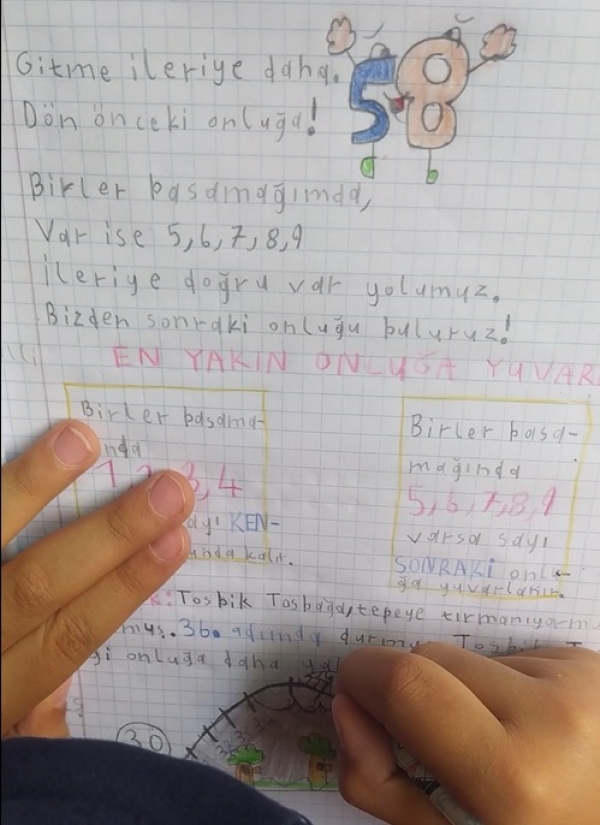 Gitme ileriye daha.
Dön önceki onluğa!
58
d b
Birler basamağımda,
Var ise 5,6,7,8,9
İleriye doğru var yolumuz.
Bizden sonraki onluğu buluruz!
EN YAKIN ONLUĞA YUVAR
Birler basama-
nda
1, 2, 3, 4
KEN-
unda kalır.
Birler basa-
mağında
5,6,7,8,9
varsa sayı
SONRAKİ onlu-
ğa yuvarlanır.
Tosbik Tosbağa, tepeye tırmanıyorm
mış. 36. adımda
onluğa daha
30